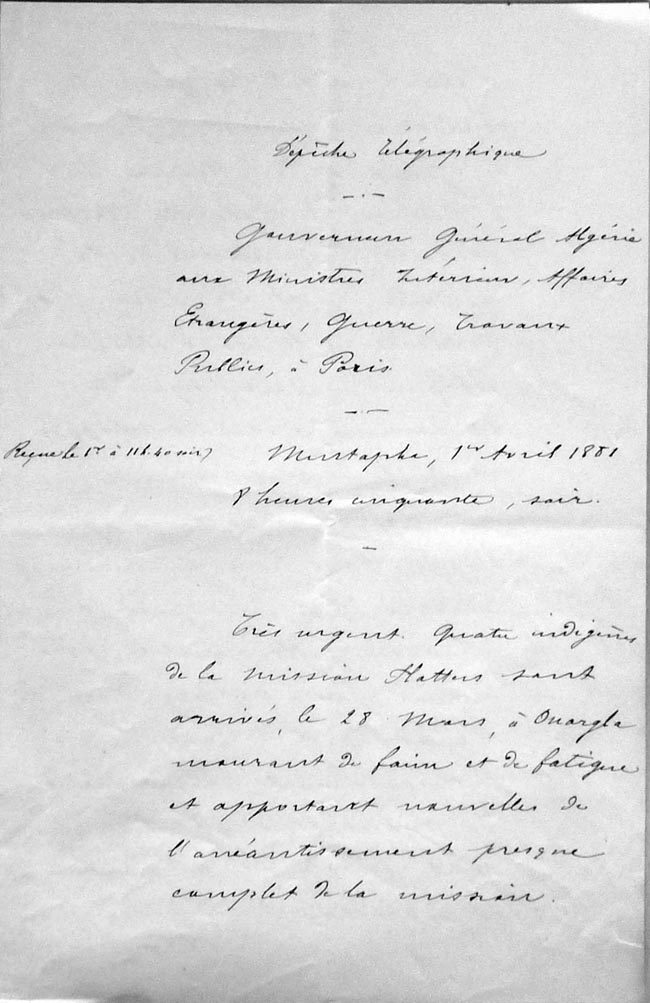 Dépêche télégraphique
Gouverneur Général Algérie
aux Ministres Intérieur, Affaires
Etrangères, Guerre, Travaux
Publics, à Paris
Reçue le 1er à 11h.40 soir)
Mustapha, 1er Avril 1881
8 heures cinquante, soir.
Très urgent. Quatre indigènes
de la mission Flatters sont
arrivés, le 28 Mars, à Ouargla
mourant de faim et de fatigue
et apportant nouvelles de
l'anéantissement presque
complet de la mission.